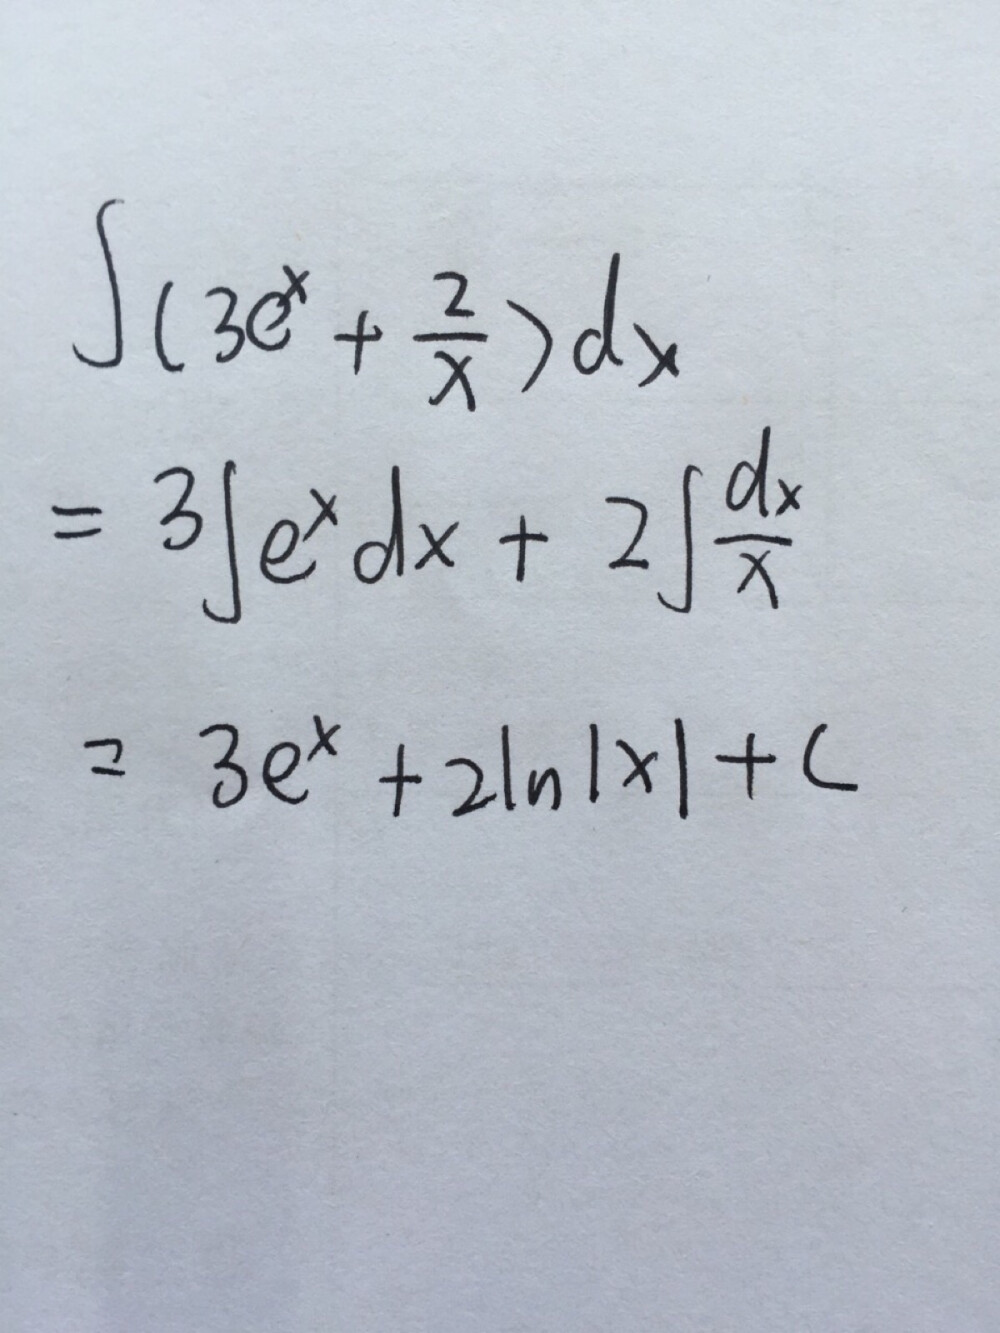 ∫(3eˣ + 2/x)dx
= 3∫eˣdx + 2∫dx/x
= 3eˣ + 2ln|x| + C